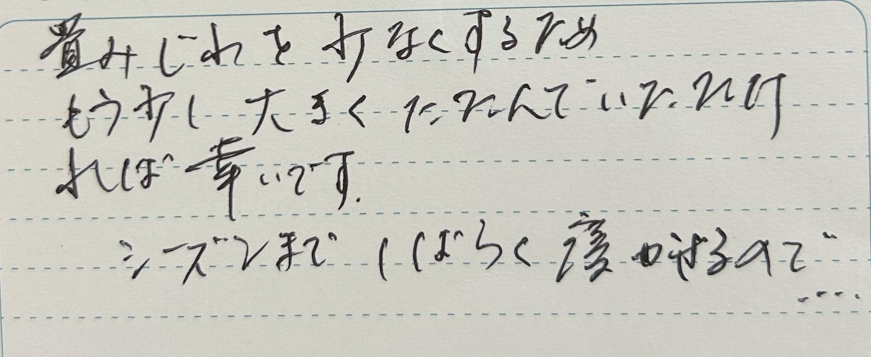 畳みじわを少なくするため
もう少し大きくたたんでいただけ
れば幸いです。
シーズンまでしばらく寝かせるので
....